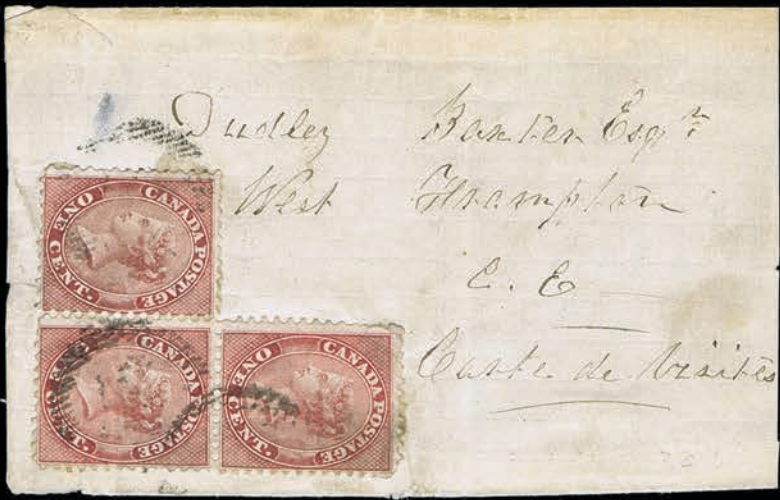 Dudley Baxter Esqr
West Frampton
C. E
Carte de Visites
CANADA POSTAGE
ONE CENT.
CANADA POSTAGE
ONE CENT.
CANADA POSTAGE
ONE CENT.